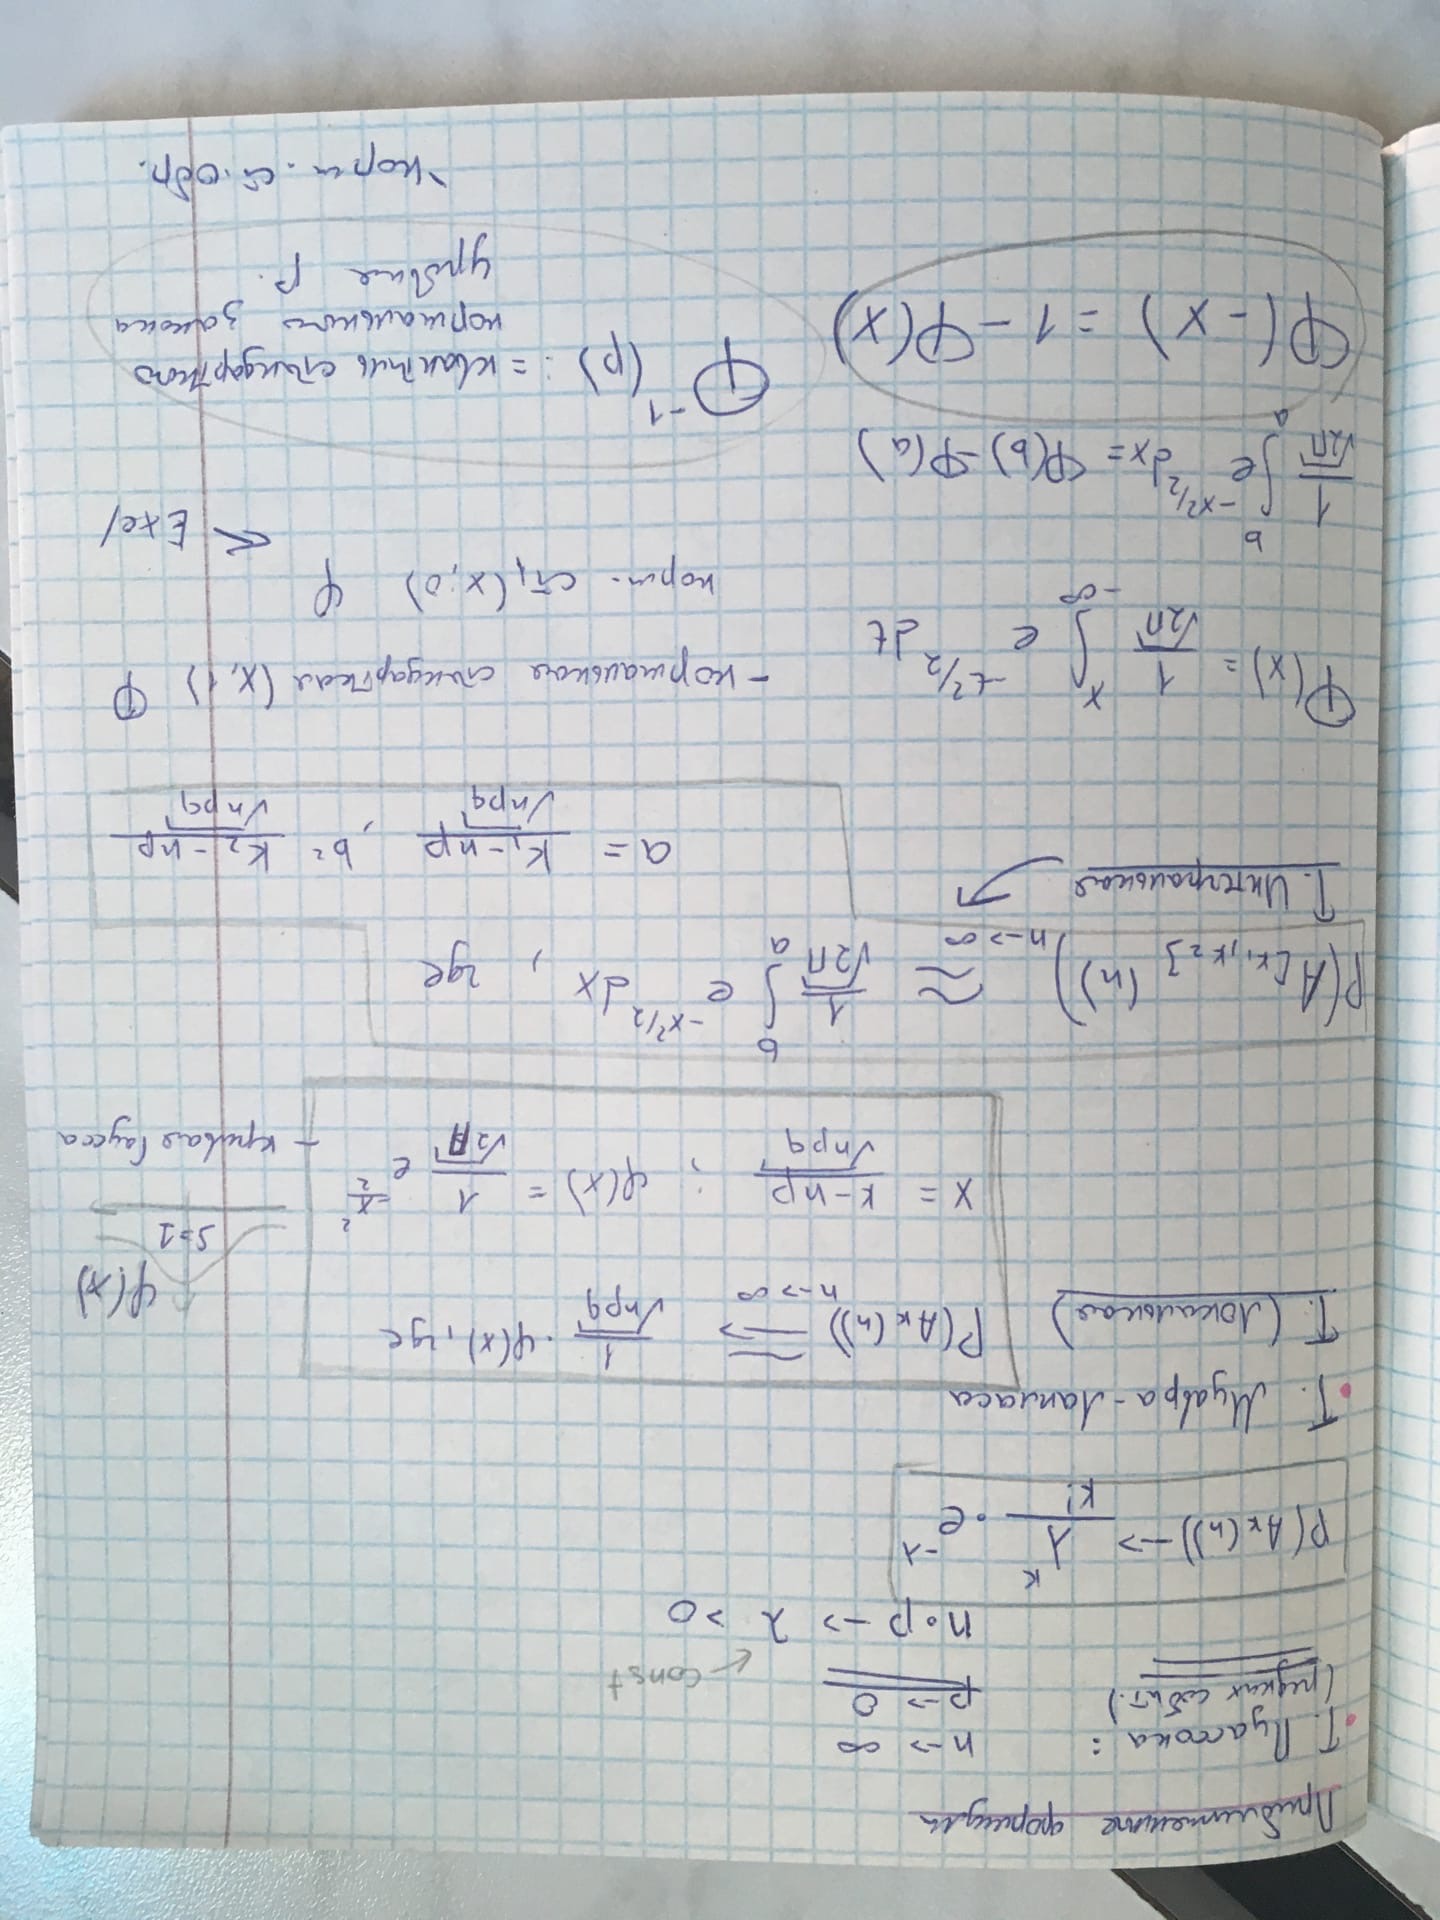 Приближенные формулы
• Т. Пуассона : n → ∞
(редких событ.) p → 0
n • p → λ > 0 ← const
P(Aк(n)) → λ^к / к! • e^-λ
• Т. Муавра-Лапласа
Т. (локальная) P(Aк(n)) ≈→ n→∞ 1/√npq • φ(x), где
φ(x)
S=1
x = к-np / √npq ; φ(x) = 1/√2π e^-x²/2 – кривая Гаусса
P(A[к₁,к₂] (n)) n→∞ ≈ 1/√2π ∫ₐᵇ e^-x²/2 dx , где
Т. Интегральная
a = к₁-np / √npq , b = к₂-np / √npq
Φ(x) = 1/√2π ∫₋∞ˣ e^-t²/2 dt - нормальная стандартная (x, 1) Φ
норм. ст. (x; 0) φ
⇐ Exel
1/√2π ∫ₐᵇ e^-x²/2 dx = Φ(b) - Φ(a)
Φ(-x) = 1 - Φ(x)
Φ⁻¹(p) := квантиль стандартного
нормального закона
уровня p.
норм. ст. обр.